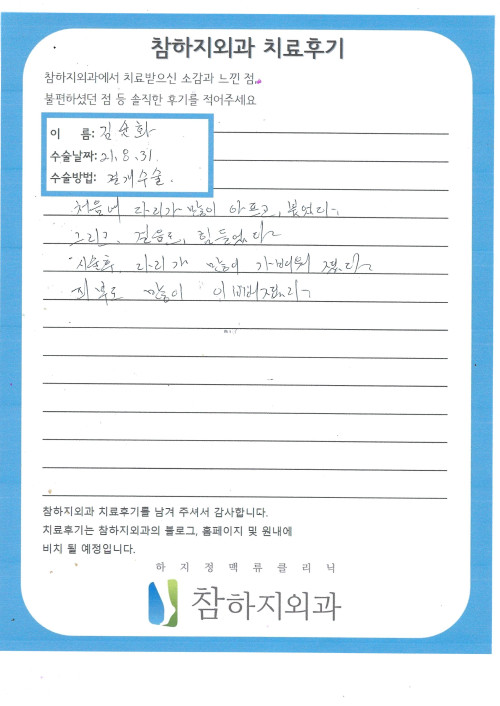 참하지외과 치료후기
참하지외과에서 치료받으신 소감과 느낀 점,
불편하셨던 점 등 솔직한 후기를 적어주세요
이 름: 김순화
수술날짜: 21.8.31.
수술방법: 절개수술.
처음에 다리가 많이 아프고, 붙었다.
그리고, 걸음도, 힘들었다
시술후, 다리가 많이 가벼워 졌다
피부도 많이 이뻐졌다
참하지외과 치료후기를 남겨 주셔서 감사합니다.
치료후기는 참하지외과의 블로그, 홈페이지 및 원내에
비치 될 예정입니다.
하지정맥류클리닉
참하지외과